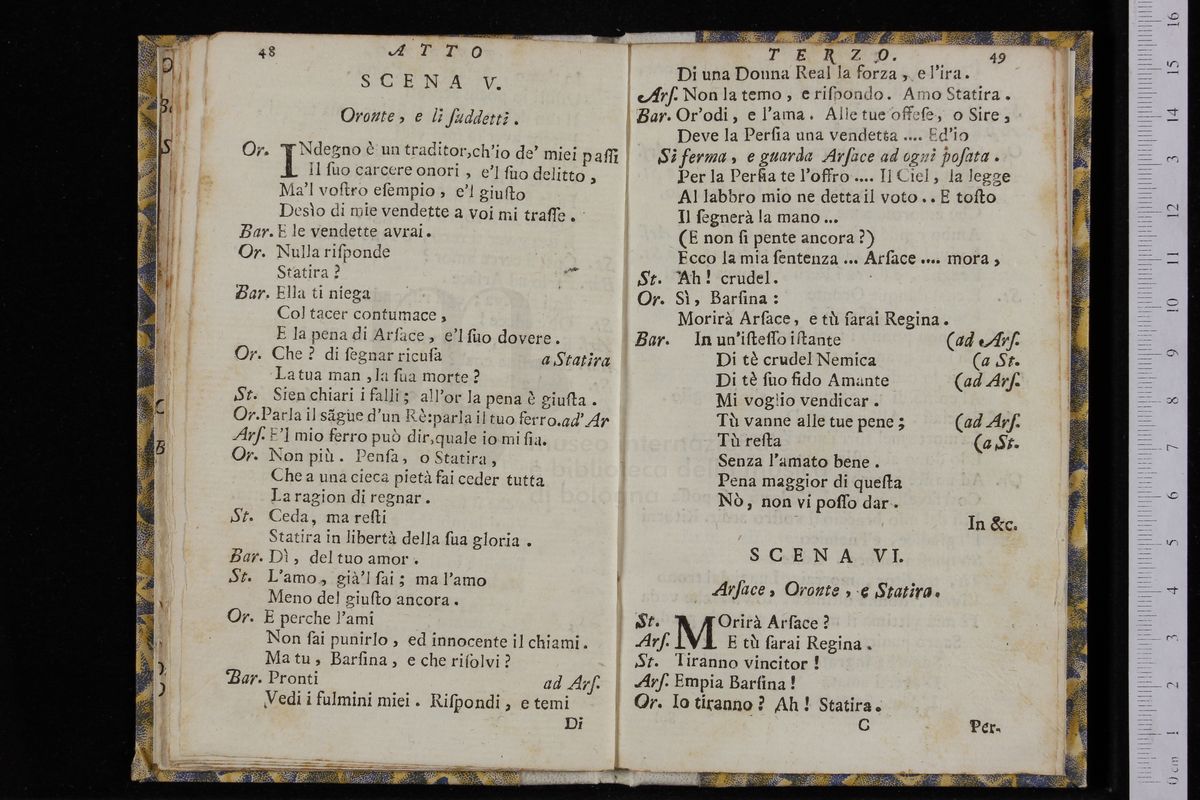 48
ATTO
SCENA V.
Oronte, e li ſuddetti.
Or. INdegno è un traditor, ch'io de' miei paſſi
Il ſuo carcere onori, e'l ſuo delitto,
Ma'l voſtro eſempio, e'l giuſto
Desìo di mie vendette a voi mi traſſe.
Bar. E le vendette avrai.
Or. Nulla riſponde
Statira?
Bar. Ella ti niega
Col tacer contumace,
E la pena di Arſace, e'l ſuo dovere.
Or. Che? di ſegnar ricuſa a Statira
La tua man, la ſua morte?
St. Sien chiari i falli; all'or la pena è giuſta.
Or. Parla il sãgue d'un Rè: parla il tuo ferro. ad' Ar
Arſ. E'l mio ferro può dir, quale io mi ſia.
Or. Non più. Penſa, o Statira,
Che a una cieca pietà fai ceder tutta
La ragion di regnar.
St. Ceda, ma reſti
Statira in libertà della ſua gloria.
Bar. Dì, del tuo amor.
St. L'amo, già'l ſai; ma l'amo
Meno del giuſto ancora.
Or. E perche l'ami
Non ſai punirlo, ed innocente il chiami.
Ma tu, Barſina, e che riſolvi?
Bar. Pronti ad Arſ.
Vedi i fulmini miei. Riſpondi, e temi
Di
TERZO.
49
Di una Donna Real la forza, e l'ira.
Arſ. Non la temo, e riſpondo. Amo Statira.
Bar. Or'odi, e l'ama. Alle tue offeſe, o Sire,
Deve la Perſia una vendetta .... Ed'io
Si ferma, e guarda Arſace ad ogni poſata.
Per la Perſia te l'offro .... Il Ciel, la legge
Al labbro mio ne detta il voto .. E toſto
Il ſegnerà la mano ...
(E non ſi pente ancora?)
Ecco la mia ſentenza ... Arſace .... mora,
St. Ah! crudel.
Or. Sì, Barſina:
Morirà Arſace, e tù ſarai Regina.
Bar. In un'iſteſſo iſtante (ad Arſ.
Di tè crudel Nemica (a St.
Di tè ſuo fido Amante (ad Arſ.
Mi voglio vendicar.
Tù vanne alle tue pene; (ad Arſ.
Tù reſta (a St.
Senza l'amato bene.
Pena maggior di queſta
Nò, non vi poſſo dar.
In &c.
SCENA VI.
Arſace, Oronte, e Statira.
St. MOrirà Arſace?
Arſ. E tù ſarai Regina.
St. Tiranno vincitor!
Arſ. Empia Barſina!
Or. Io tiranno? Ah! Statira.
C
Per-